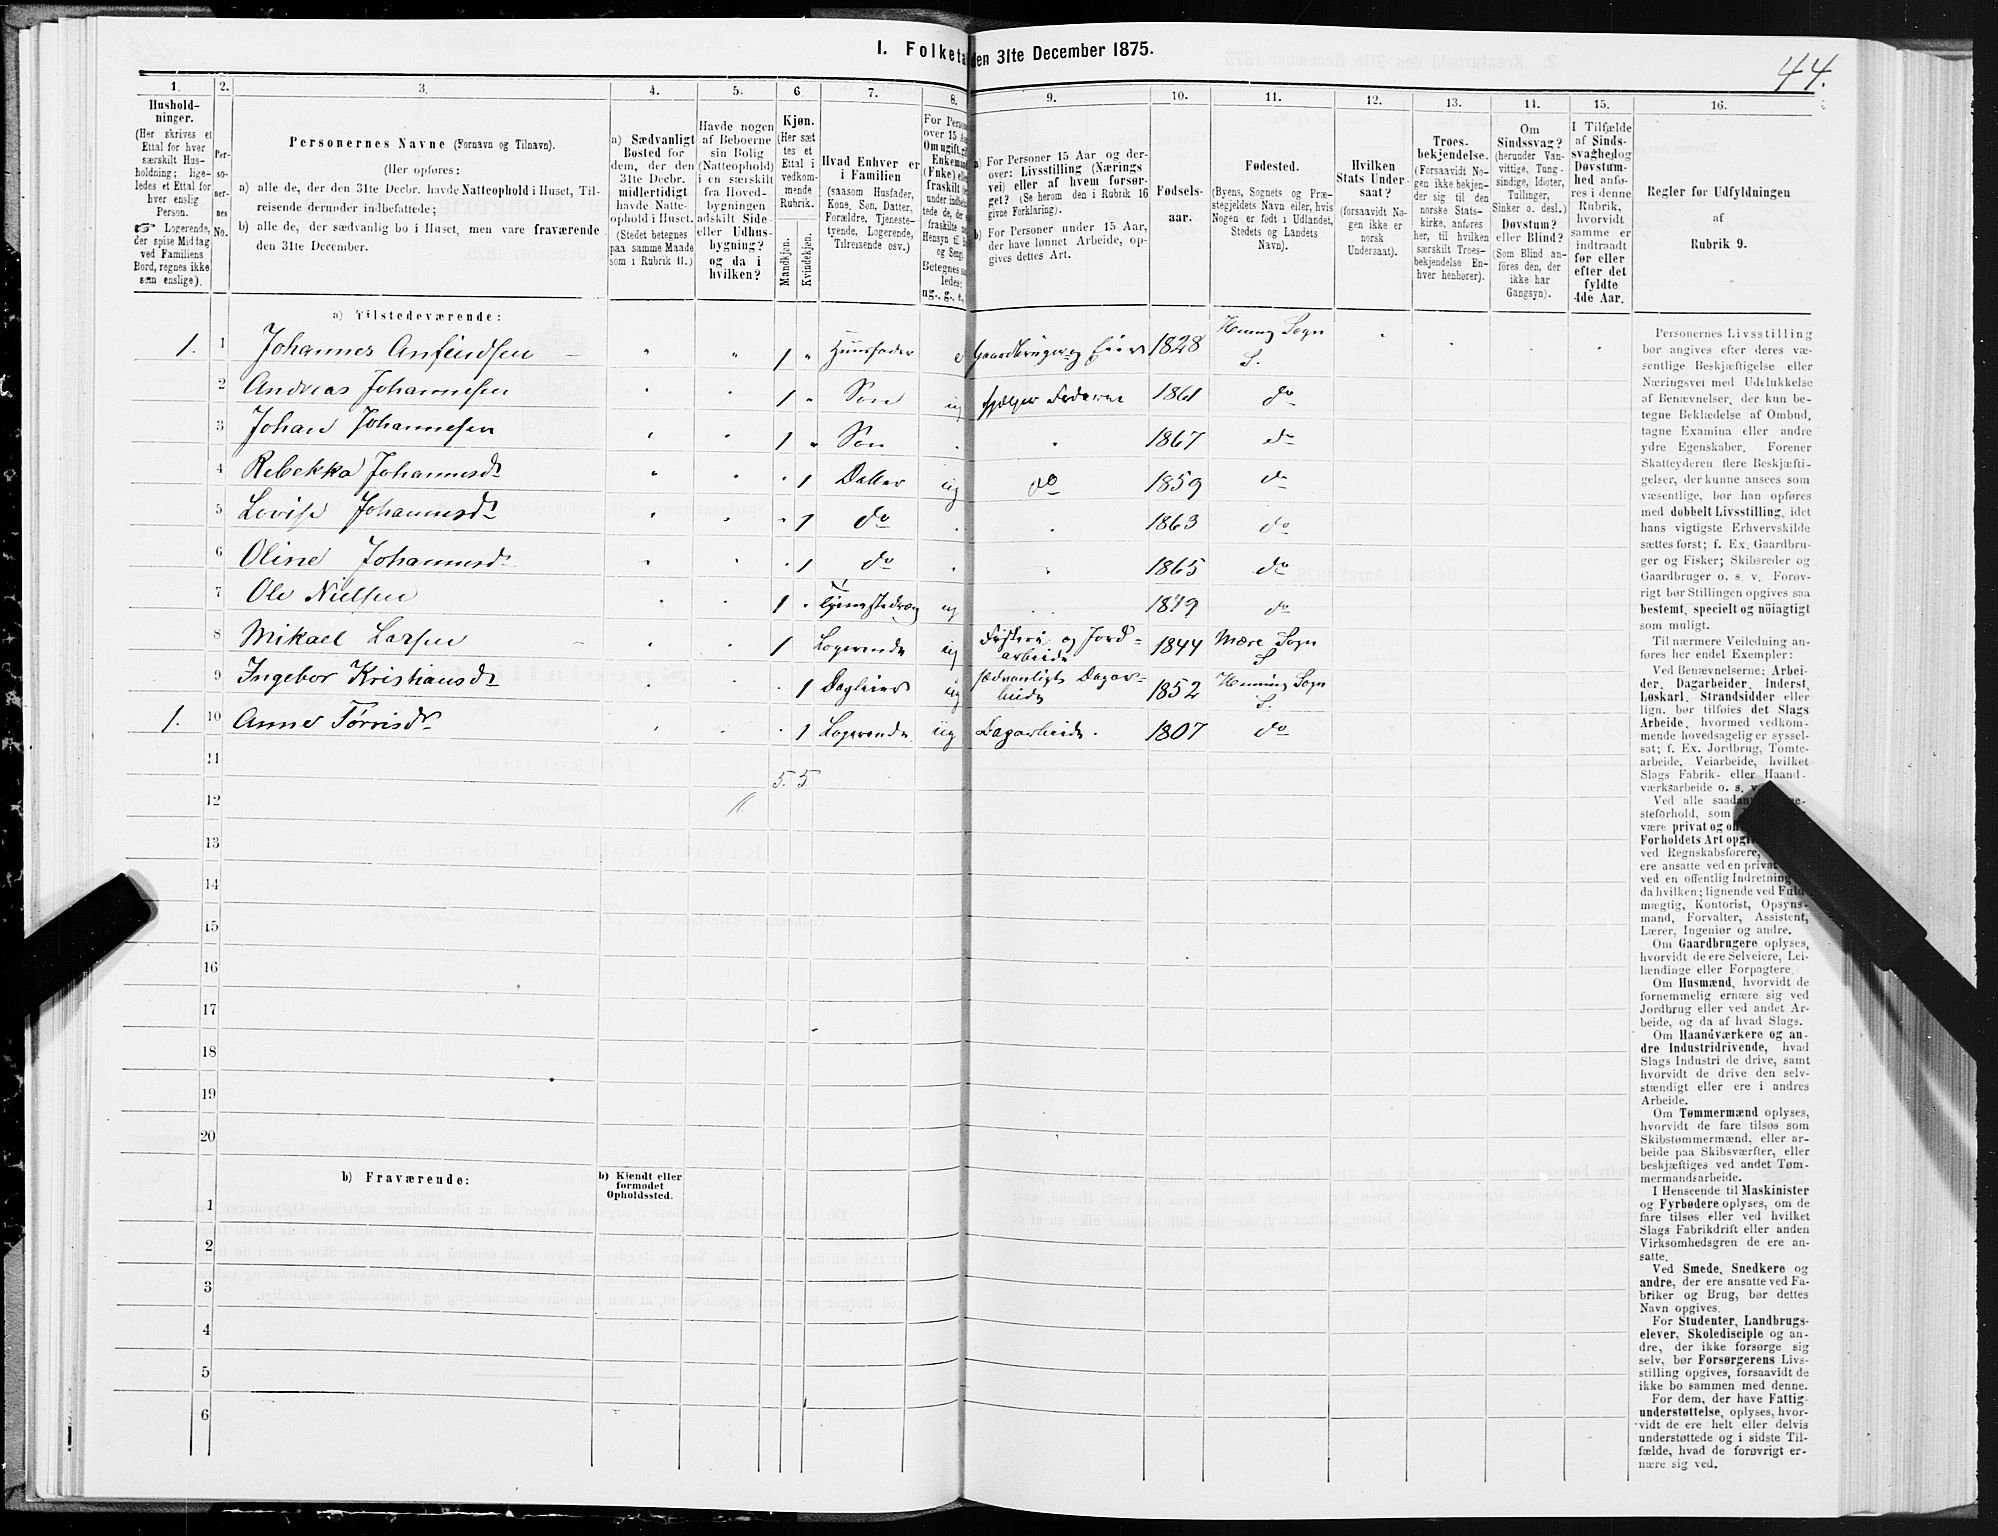 44.
I. Folketa den 31te December 1875.
1. 2. 3. 4. 5. 6. 7. 8. 9. 10. 11. 12. 13. 14. 15. 16.
Hushold-
ninger.
(Her skrives et
Ettal for hver
særskilt Hus-
holdning; lige-
ledes et Ettal for
hver enslig
Person.
☞ Logerende,
der spise Middag
ved Familiens
Bord, regnes ikke
som enslige).
Per-
so-
ner-
nes
No.
Personernes Navne (Fornavn og Tilnavn).
(Her opføres:
a) alle de, der den 31te Decbr. havde Natteophold i Huset, Til-
reisende derunder indbefattede;
b) alle de, der sædvanlig bo i Huset, men vare fraværende
den 31te December.
a) Sædvanligt
Bosted for
dem, der den
31te Decbr.
midlertidigt
havde Natte-
ophold i Huset.
(Stedet betegnes
paa samme Maade
som i Rubrik 11.)
Havde nogen
af Beboerne
sin Bolig
(Natteophold)
i en særskilt
fra Hoved-
bygningen
adskilt Side-
eller Udhus-
bygning?
og da i
hvilken?
Kjøn.
(Her sæt-
tes et
Ettal i
vedkom-
mende
Rubrik.
Mandkjøn.
Kvindekjøn.
Hvad Enhver er
i Familien
(saasom Husfader,
Kone, Søn, Datter,
Forældre, Tjeneste-
tyende, Logerende,
Tilreisende osv.)
For Person
over 15 Aa
Om ugift, gi
Enkemand
(Enke) elle
fraskilt
Betegnes saa
ledes:
ug., g., e.,
a) For Personer 15 Aar og der-
over: Livsstilling (Nærings
vei) eller af hvem forsør-
get? (Se herom den i Rubrik 16
givne Forklaring).
b) For Personer under 15 Aar,
der have lønnet Arbeide, op-
gives dettes Art.
Fødsels-
aar.
Fødested.
(Byens, Sognets og Præ-
stegjeldets Navn eller, hvis
Nogen er født i Udlandet,
Stedets og Landets
Navn).
Hvilken
Stats Under-
saat?
(forsaavidt No-
gen ikke er
norsk
Undersaat).
Troes-
bekjendelse.
(Forsaavidt No-
gen ikke bekjen-
der sig til den
norske Stats-
kirke, anføres
her, til hvilken
særskilt Troes-
bekjendelse En-
hver henhører).
Om
Sindssvag?
(herunder Van-
vittige, Tung-
sindige, Idioter,
Tullinger,
Sinker o. desl.)
Døvstum?
eller Blind?
(Som Blind an-
føres den, der
ikke har
Gangsyn).
I Tilfælde
af Sinds-
svaghed og
Døvstum-
hed anfø-
res i denne
Rubrik,
hvorvidt
samme er
indtraadt
før eller
efter det
fyldte
4de Aar.
Regler for Udfyldningen
af
Rubrik 9.
a) Tilstedeværende:
1. 1 Johannes Anfindsen 1 Huusfader e Gaardbruger og Eier 1828 Henning Sogn S.
2 Andreas Johannesen 1 Søn ug hjelper Faderen 1861 do
3 Johan Johannesen 1 Søn 1867 do
4 Rebekka Johannesdr 1 Datter ug do 1859 do
5 Lovise Johannesdr 1 do 1863 do
6 Oline Johannesdr 1 do 1865 do
7 Ole Nielsen 1 ug 1849 do
8 Mikael Larsen 1 Logerende ug Fiskeri og Jord-
arbeide 1844 Mære Sogn S
9 Ingebor Kristiansdr 1 ug sædvanligt Dagar-
beide 1852 Henning Sogn S.
1. 10 Anne Tørrisdr 1 Logerende ug Dagarbeide. 1807 do
11 5 5
12
13
14
15
16
17
18
19
20
b) Fraværende:
b) Kjendt eller
formodet
Opholdssted.
1
2
3
4
5
6
Personernes Livsstilling
bør angives efter deres væ-
sentlige Beskjæftigelse eller
Næringsvei med Udelukkelse
af Benævnelser, der kun be-
tegne Beklædelse af Ombud,
tagne Examina eller andre
ydre Egenskaber. Forener
Skatteyderen flere Beskjæfti-
gelser, der kunne ansees som
væsentlige, bør han opføres
med dobbelt Livsstilling, idet
hans vigtigste Erhvervskilde
sættes først; f. Ex. Gaardbru-
ger og Fisker; Skibsreder og
Gaardbruger o. s. v. Forøv-
rigt bør Stillingen opgives saa
bestemt, specielt og nöiagtigt
som muligt.
Til nærmere Veiledning an-
føres her endel Exempler:
Ved Benævnelserne: Arbei-
der, Dagarbeider, Inderst,
Løskarl, Strandsidder eller
lign. bør tilføies det Slags
Arbeide, hvormed vedkom-
mende hovedsagelig er syssel-
sat; f. Ex. Jordbrug, Tomte-
arbeide, Veiarbeide, hvilket
Slags Fabrik- eller Haand-
værksarbeide o. s. v.
Ved alle saadan
steforhold, som
være privat og of
Forholdets Art opgi
ved Regnskabsførere,
ere ansatte ved en privat
ved en offentlig Indretning
da hvilken; lignende ved Fuld
mægtig, Kontorist, Opsyns-
mand, Forvalter, Assistent,
Lærer, Ingeniør og andre.
Om Gaardbrugere oplyses,
hvorvidt de ere Selveiere, Lei-
lændinge eller Forpagtere.
Om Husmænd, hvorvidt de
fornemmelig ernære sig ved
Jordbrug eller ved andet Ar-
beide, og da af hvad Slags.
Om Haandværkere og an-
dre Industridrivende, hvad
Slags Industri de drive, samt
hvorvidt de drive den selv-
stændigt eller ere i andres
Arbeide.
Om Tømmermænd oplyses,
hvorvidt de fare tilsøs som
Skibstømmermænd, eller ar-
beide paa Skibsværfter, eller
beskjæftiges ved andet Tøm-
mermandsarbeide.
I Henseende til Maskinister
og Fyrbødere oplyses, om de
fare tilsøs eller ved hvilket
Slags Fabrikdrift eller anden
Virksomhedsgren de ere an-
satte.
Ved Smede, Snedkere og
andre, der ere ansatte ved Fa-
briker og Brug, bør dettes
Navn opgives.
For Studenter, Landbrugs-
elever, Skoledisciple og an-
dre, der ikke forsørge sig
selv, bør Forsørgerens Livs-
stilling opgives, forsaavidt de
ikke bo sammen med denne.
For dem, der have Fattig-
understøttelse, oplyses, hvor-
vidt de ere helt eller delvis
understøttede og i sidste Til-
fælde, hvad de forøvrigt er-
nære sig ved.